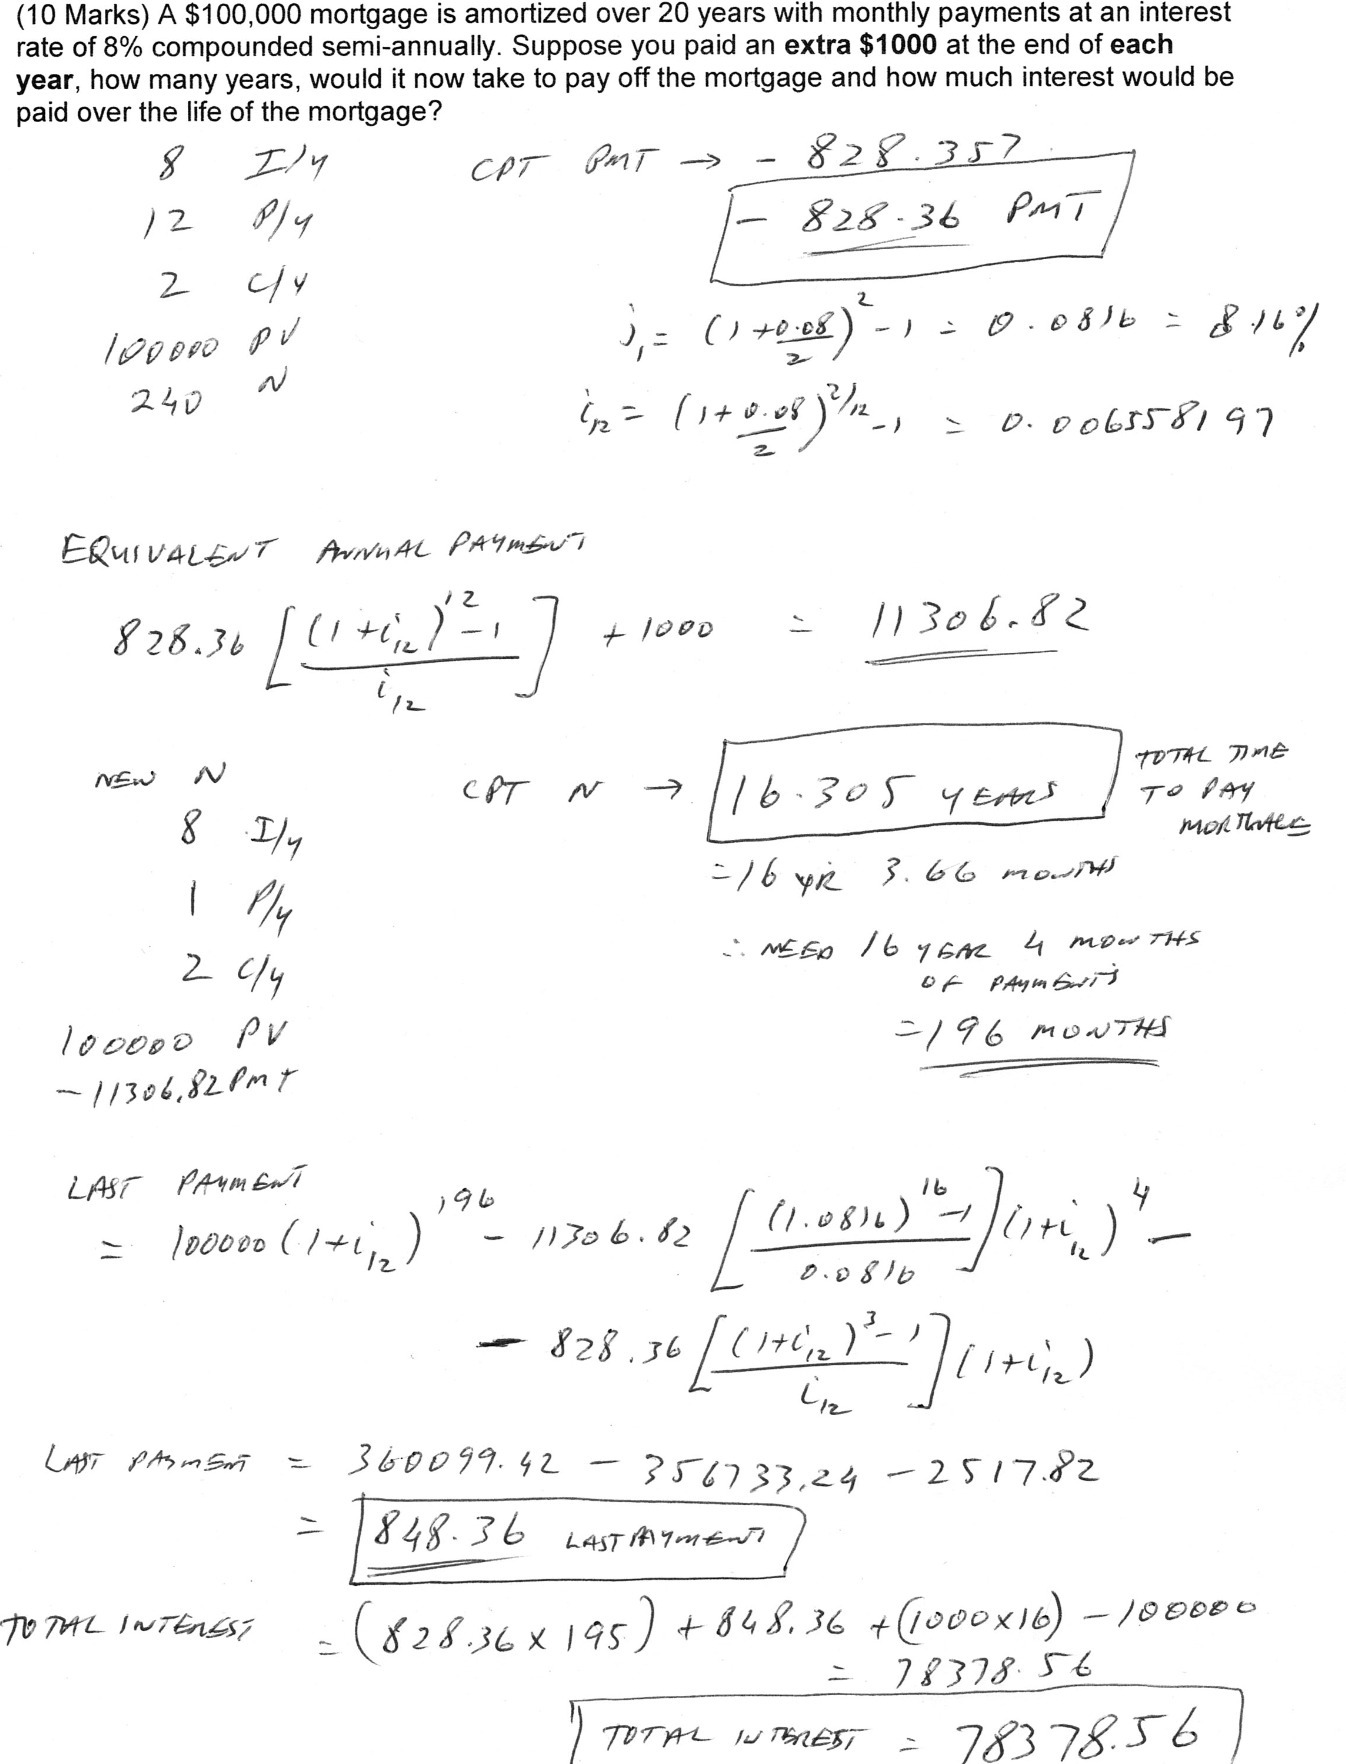 (10 Marks) A $100,000 mortgage is amortized over 20 years with monthly payments at an interest
rate of 8% compounded semi-annually. Suppose you paid an extra $1000 at the end of each
year, how many years, would it now take to pay off the mortgage and how much interest would be
paid over the life of the mortgage?
8 I/y CPT PMT → - 828.357
12 P/y - 828.36 PMT
2 C/y
100000 PV j₁ = (1+0.08/2)² - 1 = 0.0816 = 8.16%
240 N
i₁₂ = (1+0.08/2)^(2/12) - 1 = 0.006558197
EQUIVALENT ANNUAL PAYMENT
828.36 [((1+i₁₂)¹² - 1)/i₁₂] + 1000 = 11306.82
NEW N CPT N → 16.305 YEARS TOTAL TIME
TO PAY
MORTGAGE
8 I/y
1 P/y = 16 YR 3.66 MONTHS
2 C/y ∴ NEED 16 YEAR 4 MONTHS
OF PAYMENTS
100000 PV = 196 MONTHS
- 11306.82 PMT
LAST PAYMENT
= 100000 (1+i₁₂)¹⁹⁶ - 11306.82 [((1.0816)¹⁶ - 1)/0.0816] (1+i₁₂)⁴ -
- 828.36 [((1+i₁₂)³ - 1)/i₁₂] (1+i₁₂)
LAST PAYMENT = 360099.42 - 356733.24 - 2517.82
= 848.36 LAST PAYMENT
TOTAL INTEREST = (828.36 x 195) + 848.36 + (1000x16) - 100000
= 78378.56
TOTAL INTEREST = 78378.56